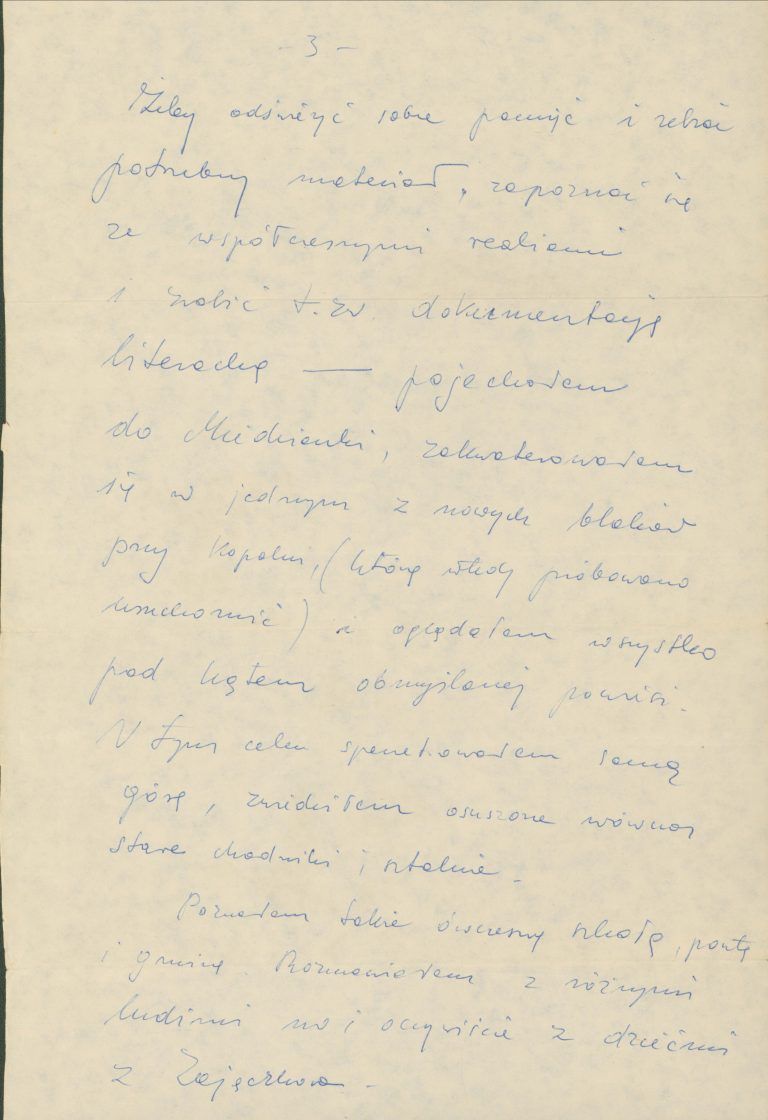 - 3 -
Żeby odświeżyć sobie pamięć i zebrać
potrzebny materiał, zapoznać się
ze współczesnymi realiami
i zrobić t.zw. dokumentację
literacką — pojechałem
do Miedzianki, zakwaterowałem
się w jednym z nowych bloków
przy kopalni, (którą wtedy próbowano
uruchomić) i oglądałem wszystko
pod kątem obmyślanej powieści.
W tym celu spenetrowałem samą
górę, zwiedziłem osuszone wówczas
stare chodniki i sztolnie.
Poznałem także ówczesną szkołę, pocztę
i gminę. Rozmawiałem z różnymi
ludźmi no i oczywiście z dziećmi
z Zajączkowa.